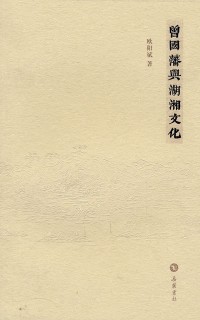 曾國藩與湖湘文化
欧阳斌 著
岳麓書社